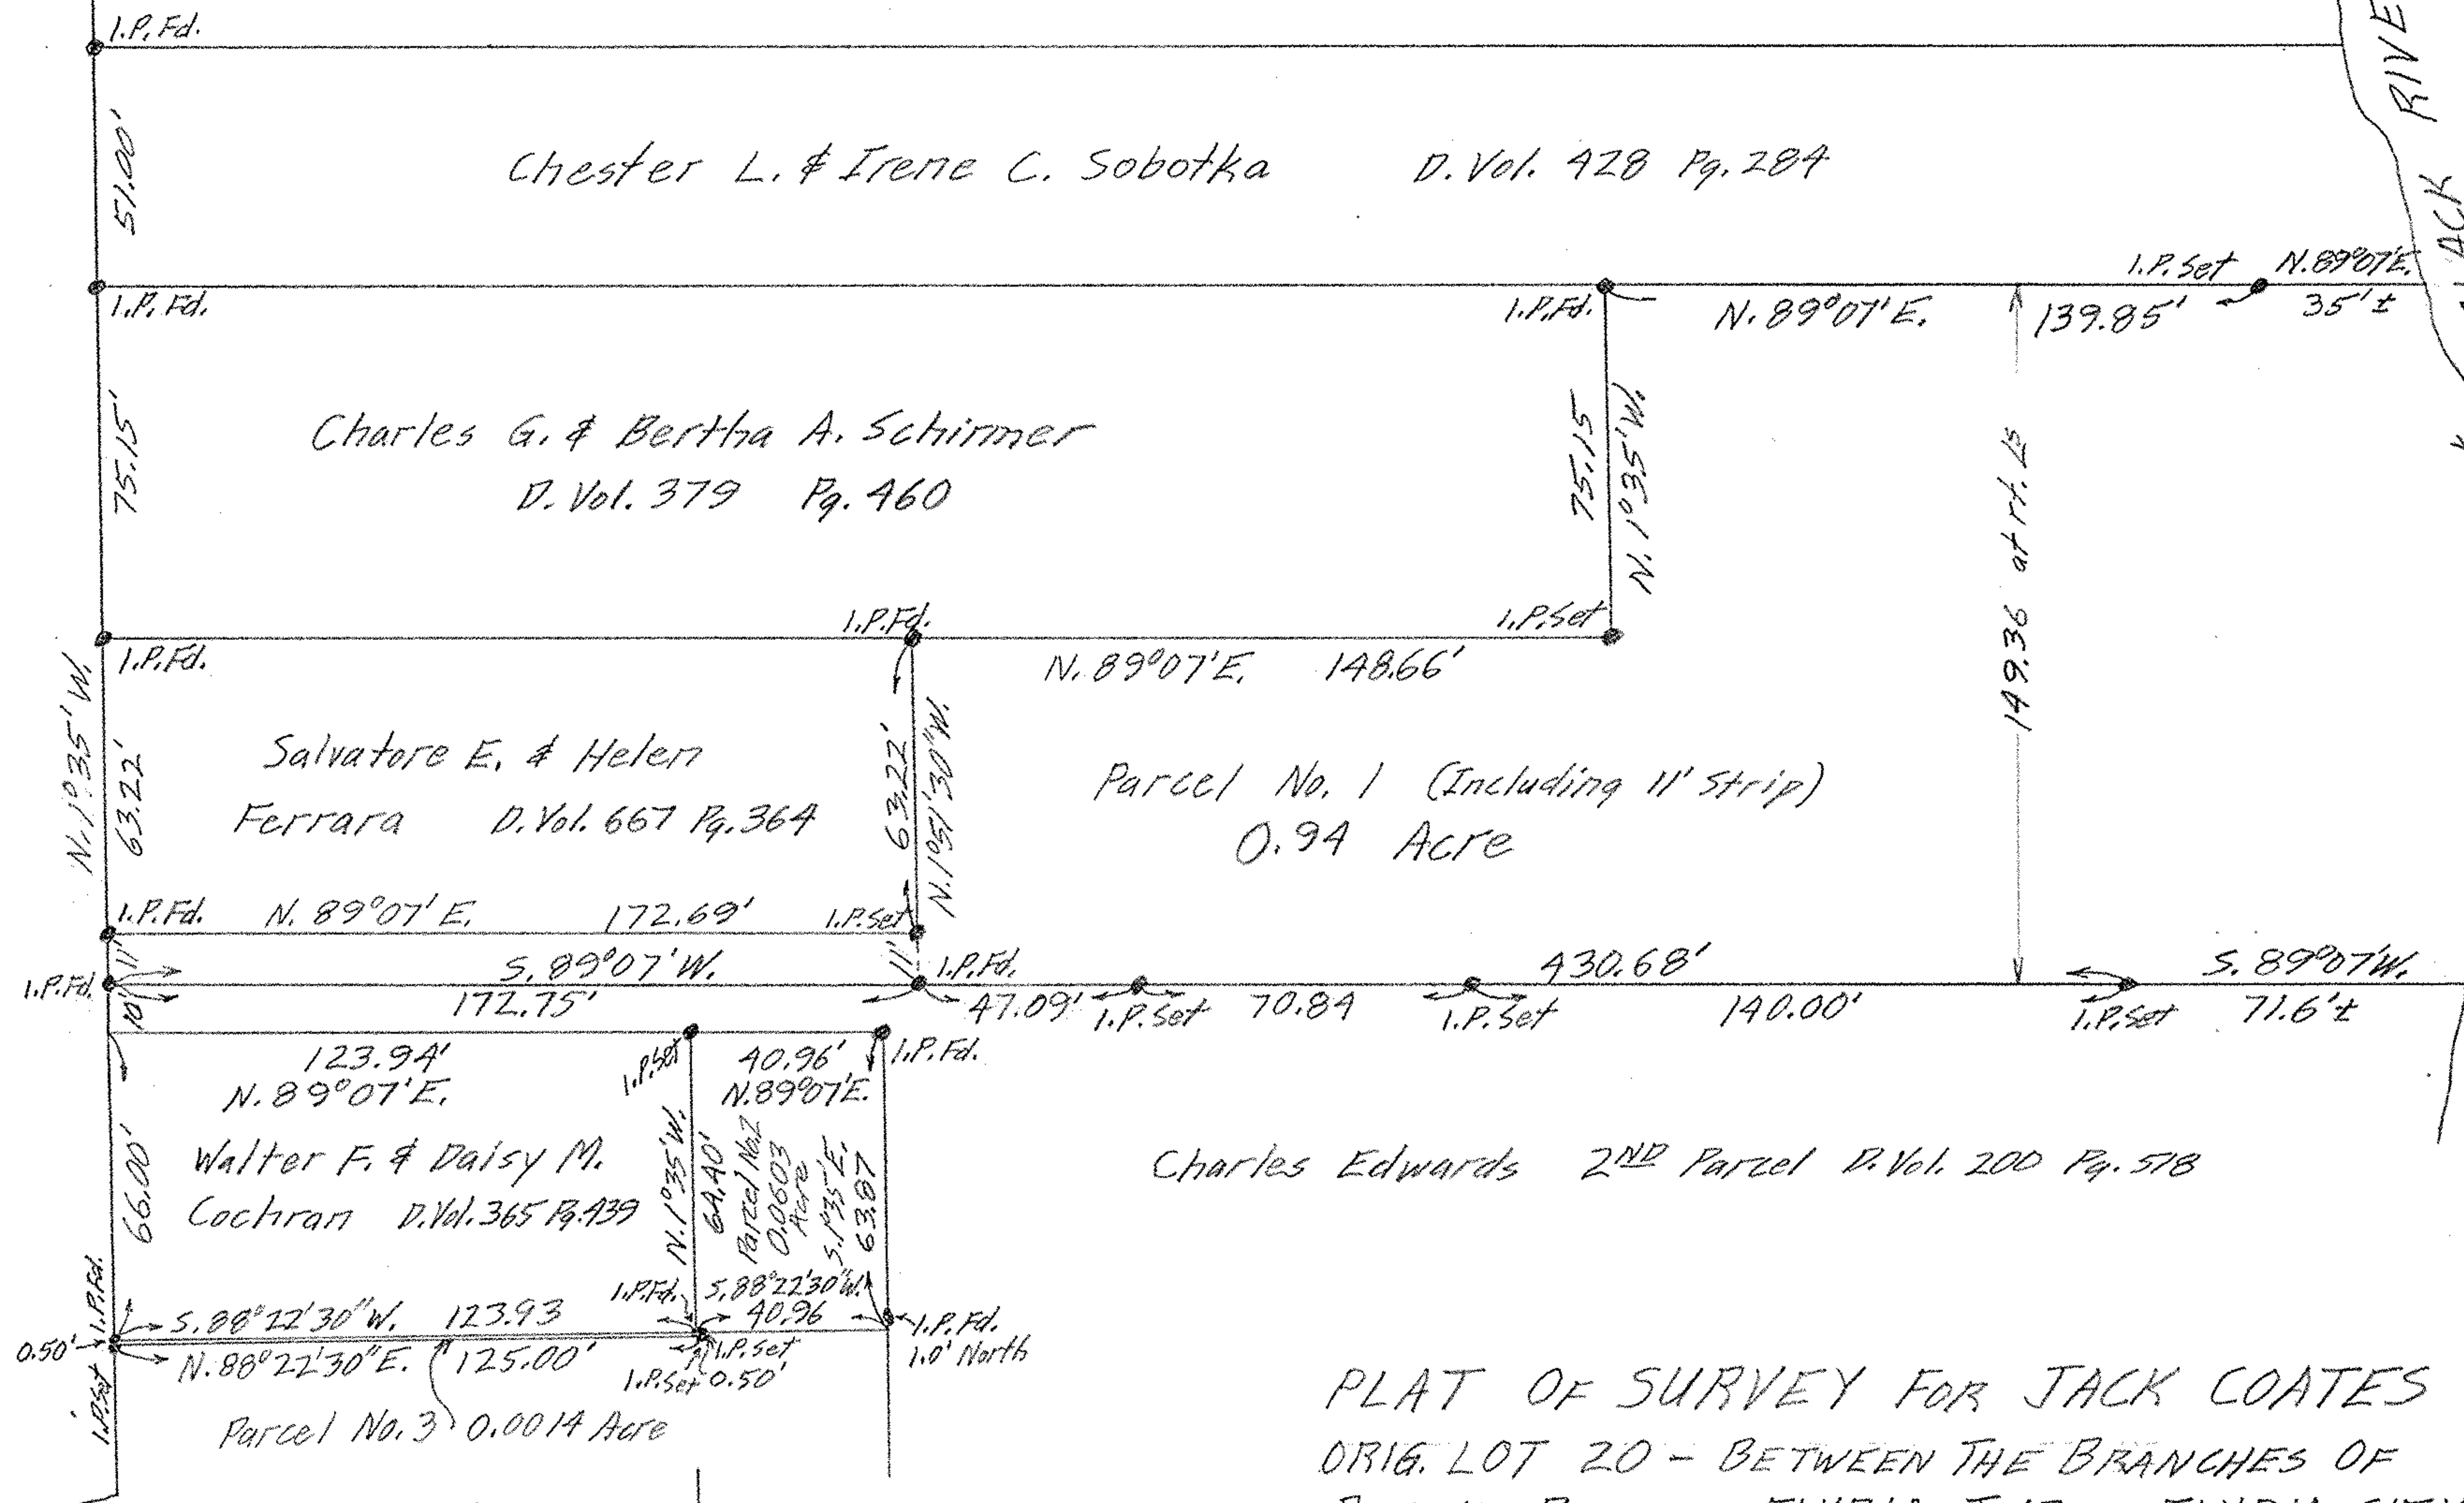 I.P. Fd.
RIVE
51.00'
Chester L. & Irene C. Sobotka D. Vol. 428 Pg. 284
I.P. Set N. 89°07' E.
I.P. Fd.
I.P. Fd.
N. 89°07' E.
139.85'
35' ±
75.15'
Charles G. & Bertha A. Schirmer
D. Vol. 379 Pg. 460
75.15
N. 1°35' W.
149.36 at rt. Ls
I.P. Fd.
I.P. Set
I.P. Fd.
N. 89°07' E. 148.66'
N. 1°35' W.
63.22'
Salvatore E. & Helen
Ferrara D. Vol. 667 Pg. 364
63.22'
N. 1°51'30" W.
Parcel No. 1 (Including 11' Strip)
0.94 Acre
I.P. Fd. N. 89°07' E. 172.69' I.P. Set
11'
S. 89°07' W.
11'
I.P. Fd.
430.68'
S. 89°07' W.
I.P. Fd.
10'
172.75'
47.09' I.P. Set 70.84 I.P. Set 140.00' I.P. Set 71.6' ±
123.94'
N. 89°07' E.
I.P. Set
40.96'
N. 89°07' E.
I.P. Fd.
66.00'
Walter F. & Daisy M.
Cochran D. Vol. 365 Pg. 439
N. 1°35' W.
64.40'
Parcel No. 2
0.0603
Acre
S. 1°35' E.
63.87
Charles Edwards 2ND Parcel D. Vol. 200 Pg. 518
I.P. Fd.
I.P. Fd.
S. 88°22'30" W.
40.96
S. 88°22'30" W. 123.93
I.P. Fd.
1.0' North
0.50'
N. 88°22'30" E. 125.00'
I.P. Set
I.P. Set 0.50'
I.P. Set
Parcel No. 3 0.0014 Acre
PLAT OF SURVEY FOR JACK COATES
ORIG. LOT 20 - BETWEEN THE BRANCHES OF